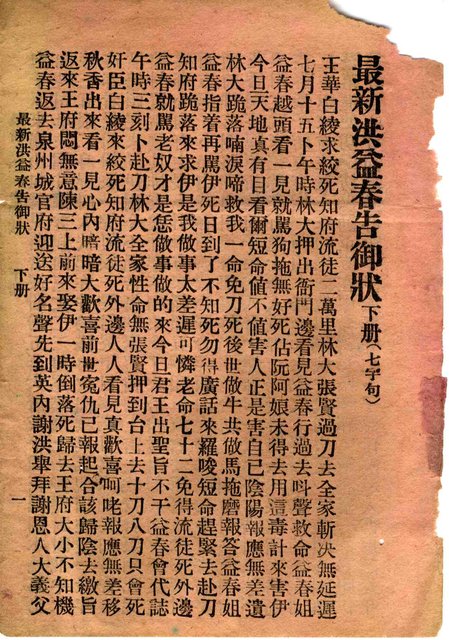 最新洪益春告御狀下册(七字句)
王華白綾求絞死知府流徒二萬里林大張賢過刀去全家斬決無延遲
七月十五卜午時林大押出衙門邊看見益春行過去呌聲救命益春姐
益春越頭看一見就罵狗拖無好死佔阮阿娘未得去用這毒計來害伊
今旦天地真有目看爾短命值不值害人正是害自已陰陽報應無差遺
林大跪落喃淚啼救我一命免刀死後世做牛共做馬拖磨報答益春姐
益春指着再罵伊死日到了不知死勿得廣話來羅唆短命趕緊去赴刀
知府跪落來求伊是我做事太差遲可憐老命七十二免得流徒死外邊
益春就罵老奴才是恁做事做的來今旦君王出聖旨不干益春會代誌
午時三刻卜赴刀林大全家性命無張賢押到台上去十刀八刀只會死
奸臣白綾來絞死知府流徒死外邊人人看見真歡喜呵咾報應無差移
秋香出來看一見心內暗暗大歡喜前世寃仇已報起合該歸陰去繳旨
返來王府悶無意陳三上前來娶伊一時倒落死歸去王府大小不知機
益春返去泉州城官府迎送好名聲先到英內謝洪舉拜謝恩人大義父
最新洪益春告御狀 下册 一